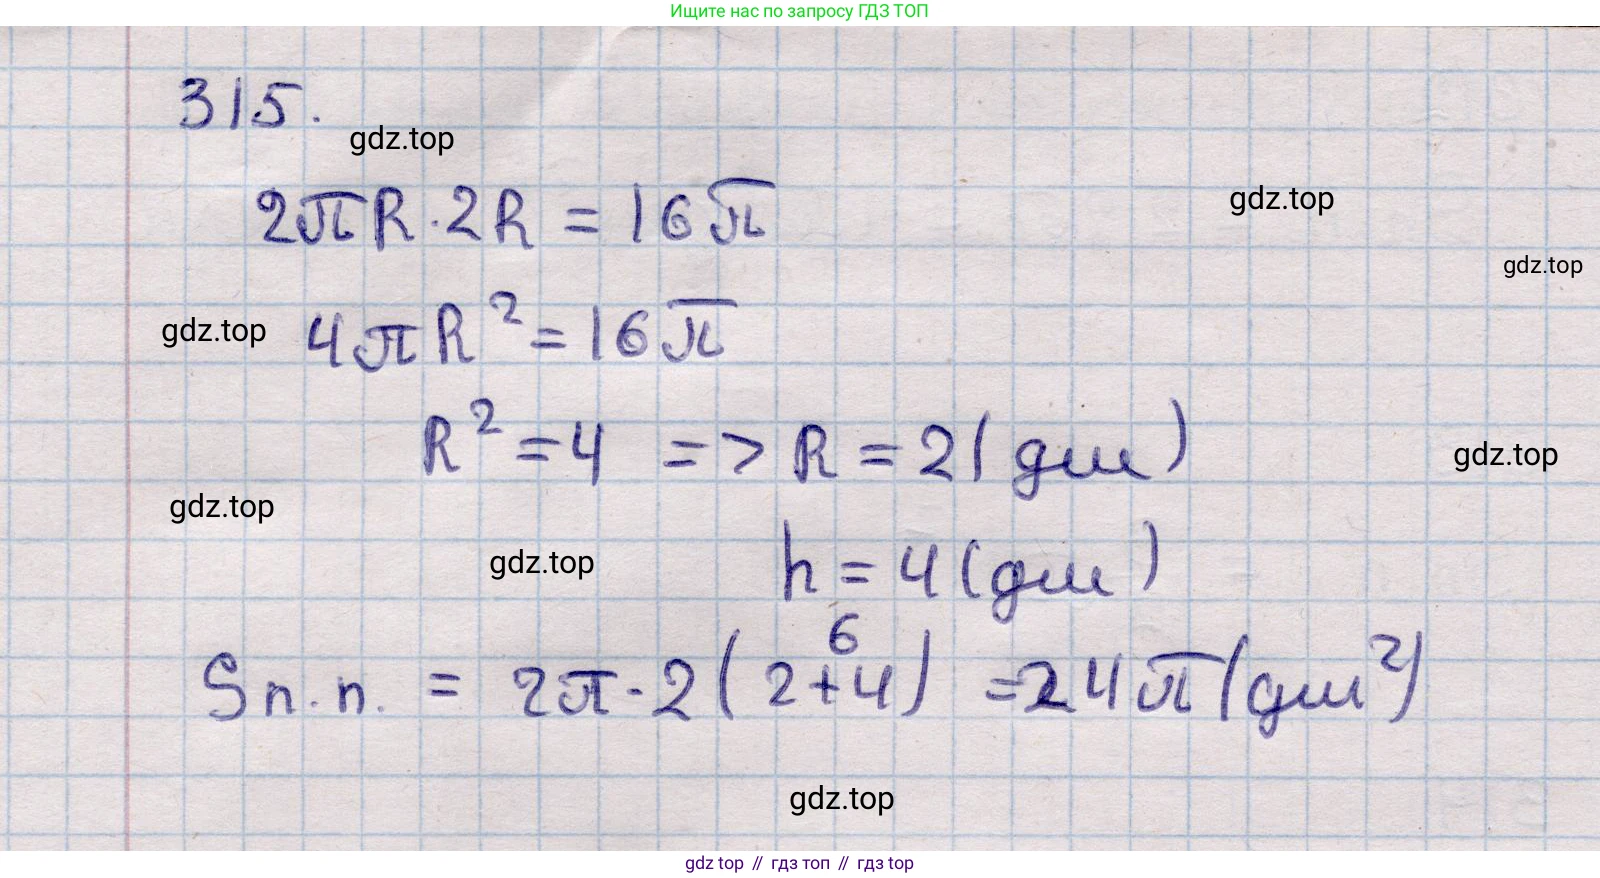 Ищите нас по запросу ГДЗ ТОП
315.
gdz.top
2πR·2R = 16π
gdz.top
gdz.top
4πR² = 16π
gdz.top
R² = 4 => R = 2 (дм)
gdz.top
gdz.top
h = 4 (дм)
gdz.top
6
Sп.п. = 2π·2(2+4) = 24π (дм²)
gdz.top
gdz top // гдз топ // гдз top